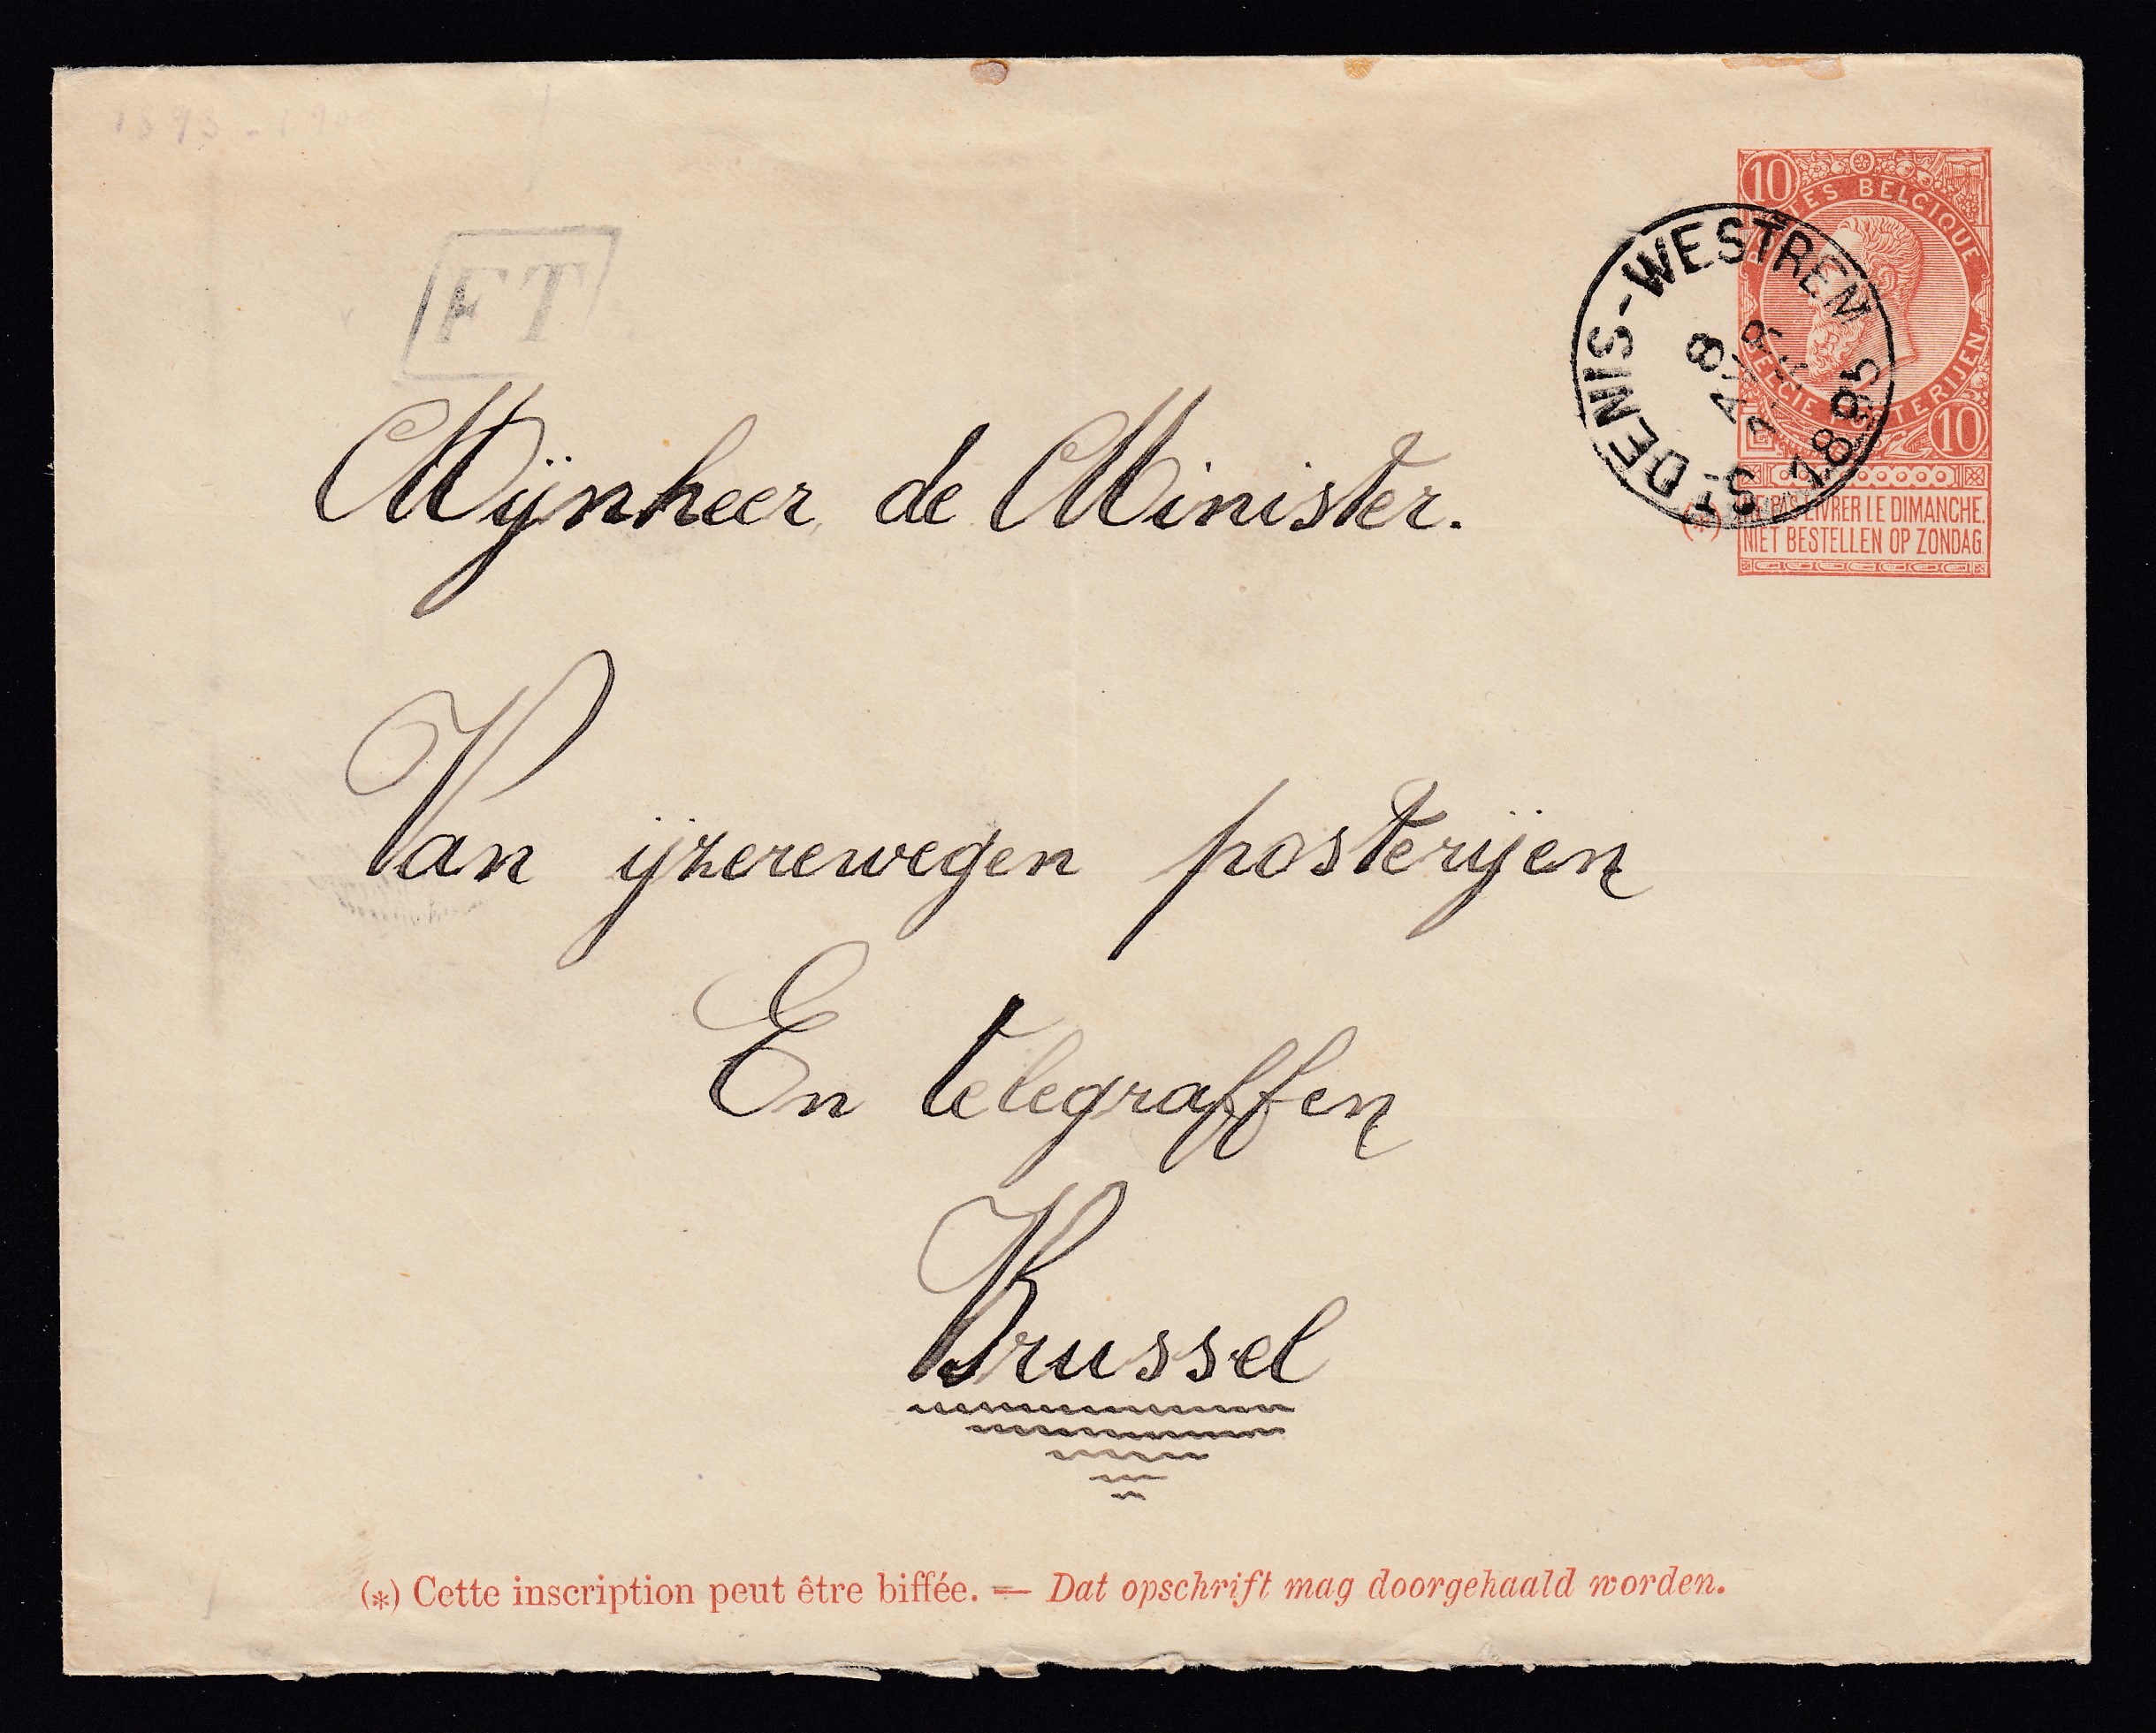 1893-190
FT
10
POSTES BELGIQUE
BELGIE POSTERIJEN
10
ST DENIS-WESTREM
8
AVR
1895
(*) NE PAS LIVRER LE DIMANCHE.
NIET BESTELLEN OP ZONDAG
Mijnheer de Minister.
Van ijzerewegen posterijen
En telegraffen
Brussel
(*) Cette inscription peut être biffée. — Dat opschrift mag doorgehaald worden.